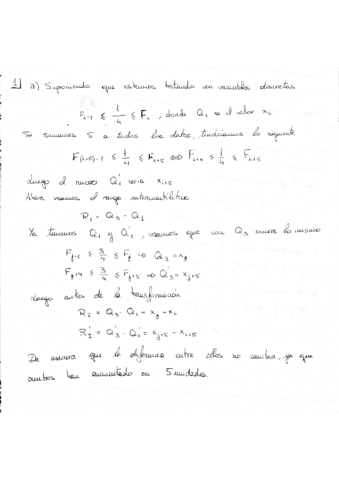 1 a) Suponiendo que estamos tratando con variables discretas
F_{i-1} ≤ 1/4 ≤ F_i, donde Q_1 es el valor x_i
Si sumamos 5 a todos los datos, tendríamos lo siguiente
F_{(i+5)-1} ≤ 1/4 ≤ F_{i+5} ⇔ F_{i+4} ≤ 1/4 ≤ F_{i+5}
Luego el nuevo Q_1' sería x_{i+5}
Ahora veamos el rango intercuartílico
R_I = Q_3 - Q_1
Ya tenemos Q_1 y Q_1', veamos que con Q_3 ocurre lo mismo
F_{j-1} ≤ 3/4 ≤ F_j → Q_3 = x_j
F_{j+4} ≤ 3/4 ≤ F_{j+5} → Q_3' = x_{j+5}
Luego antes de la transformación
R_I = Q_3 - Q_1 = x_j - x_i
R_I' = Q_3' - Q_1' = x_{j+5} - x_{i+5}
De manera que la diferencia entre ellos no cambia, ya que
ambos han aumentado en 5 unidades.